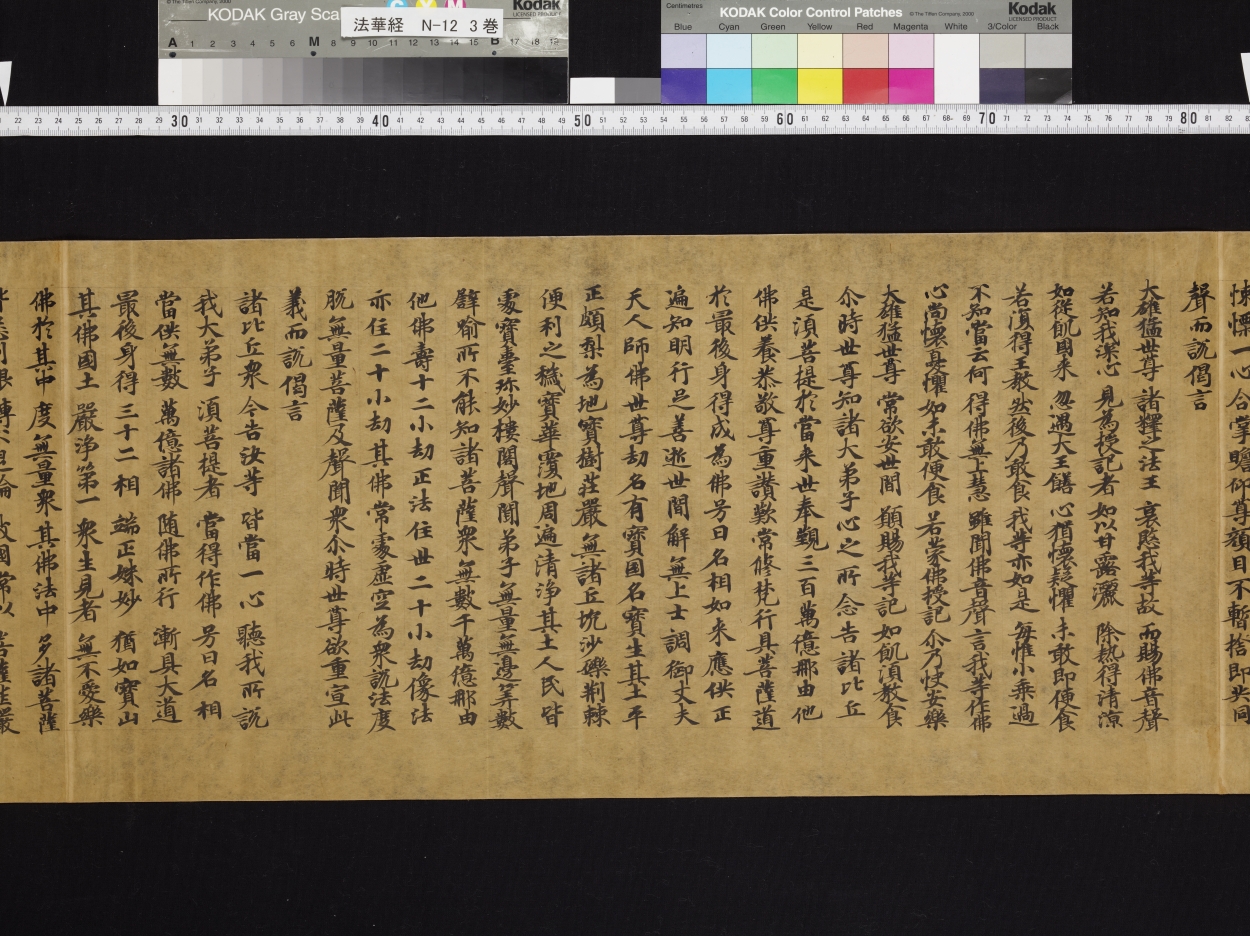 © The Tiffen Company, 2000
KODAK Gray Sca
C Y M
Kodak
LICENSED PRODUCT
法華経 N-12 3巻
A 1 2 3 4 5 6 M 8 9 10 11 12 13 14 15 B 17 18 19
Centimetres
KODAK Color Control Patches
© The Tiffen Company, 2000
Kodak
LICENSED PRODUCT
Blue Cyan Green Yellow Red Magenta White 3/Color Black
22 23 24 25 26 27 28 29 30 31 32 33 34 35 36 37 38 39 40 41 42 43 44 45 46 47 48 49 50 51 52 53 54 55 56 57 58 59 60 61 62 63 64 65 66 67 68 69 70 71 72 73 74 75 76 77 78 79 80 81 82
悚慄一心合掌瞻仰尊顔目不暫捨即共同
聲而説偈言
大雄猛世尊 諸釋之法王 哀愍我等故 而賜佛音聲
若知我深心 見為授記者 如以甘露灑 除熱得清涼
如從飢國来 忽遇大王饍 心猶懷疑懼 未敢即便食
若復得王教 然後乃敢食 我等亦如是 毎惟小乘過
不知當云何 得佛無上慧 雖聞佛音聲 言我等作佛
心尚懷憂懼 如未敢便食 若蒙佛授記 尒乃快安樂
大雄猛世尊 常欲安世間 願賜我等記 如飢湏教食
尒時世尊知諸大弟子心之所念告諸比丘
是湏菩提於當来世奉覲三百萬億那由他
佛供養恭敬尊重讃歎常修梵行具菩薩道
於最後身得成為佛号曰名相如来應供正
遍知明行足善逝世間解無上士調御丈夫
天人師佛世尊劫名有寶國名寶生其土平
正頗梨為地寶樹莊嚴無諸丘坑沙礫荆棘
便利之穢寶華覆地周遍清浄其土人民皆
處寶臺珎妙樓閣聲聞弟子無量無邊筭數
譬喻所不能知諸菩薩衆無數千萬億那由
他佛壽十二小劫正法住世二十小劫像法
亦住二十小劫其佛常處虚空為衆説法度
脱無量菩薩及聲聞衆尒時世尊欲重宣此
義而説偈言
諸比丘衆 今告汝等 皆當一心 聽我所説
我大弟子 湏菩提者 當得作佛 号曰名相
當供無數 萬億諸佛 随佛所行 漸具大道
最後身得 三十二相 端正姝妙 猶如寶山
其佛國土 嚴浄第一 衆生見者 無不愛樂
佛於其中 度無量衆 其佛法中 多諸菩薩